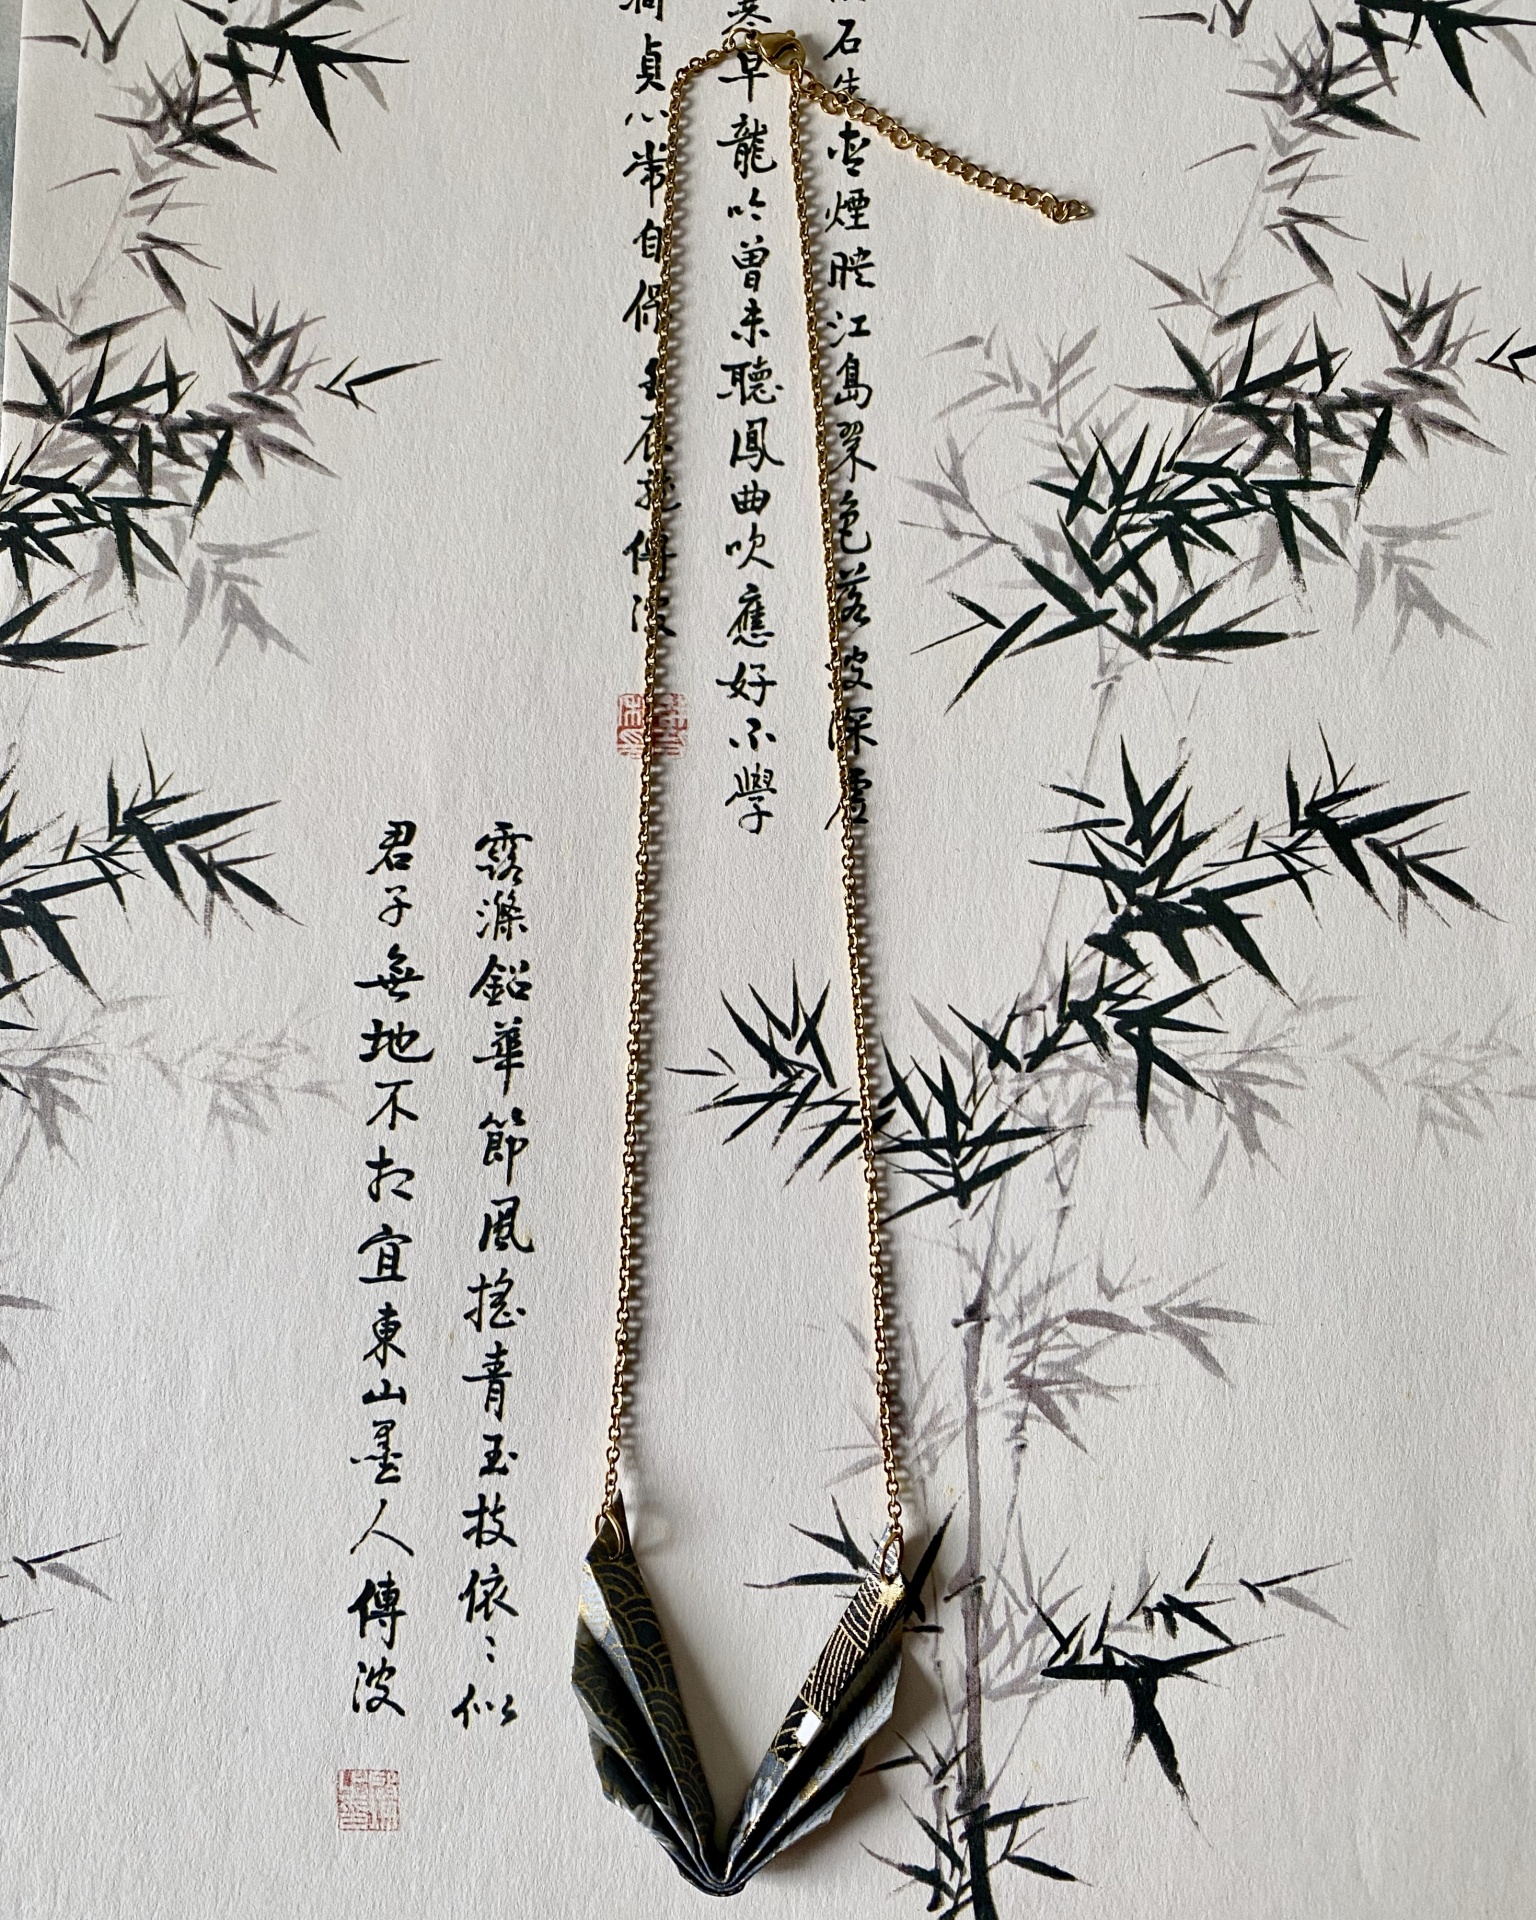 石生含煙映江島翠色落波深虛
寒早龍吟曾未聽鳳曲吹應好不學
貞心常自保 傳波
露滌鉛華節風搖青玉枝依〻似
君子無地不相宜東山墨人傳波